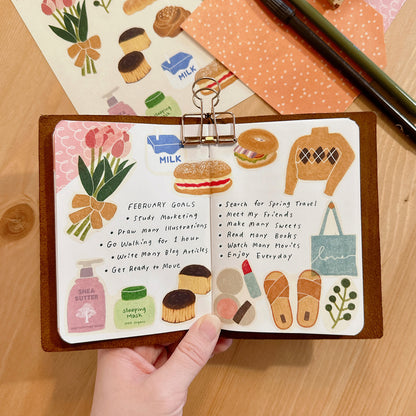 MILK
MILK
FEBRUARY GOALS
• Study Marketing
• Draw Many Illustrations
• Go Walking for 1 hour
• Write Many Blog Articles
• Get Ready to Move
SHEA
BUTTER
Sleeping
Mask
• Search for Spring Travel
• Meet My Friends
• Make Many Sweets
• Read Many Books
• Watch Many Movies
• Enjoy Everyday
love